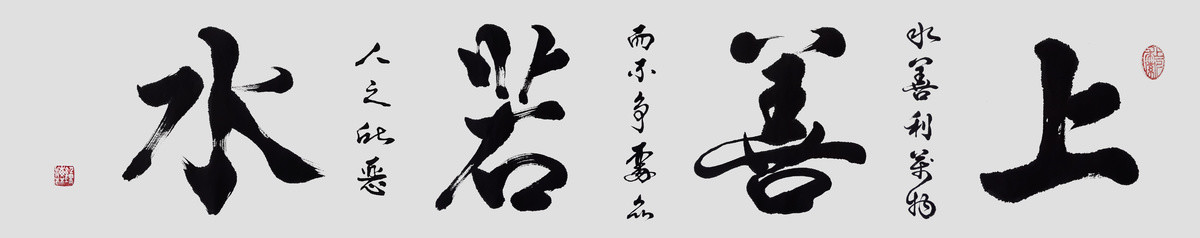 上善若水
水善利萬物
而不争處众
人之所惡